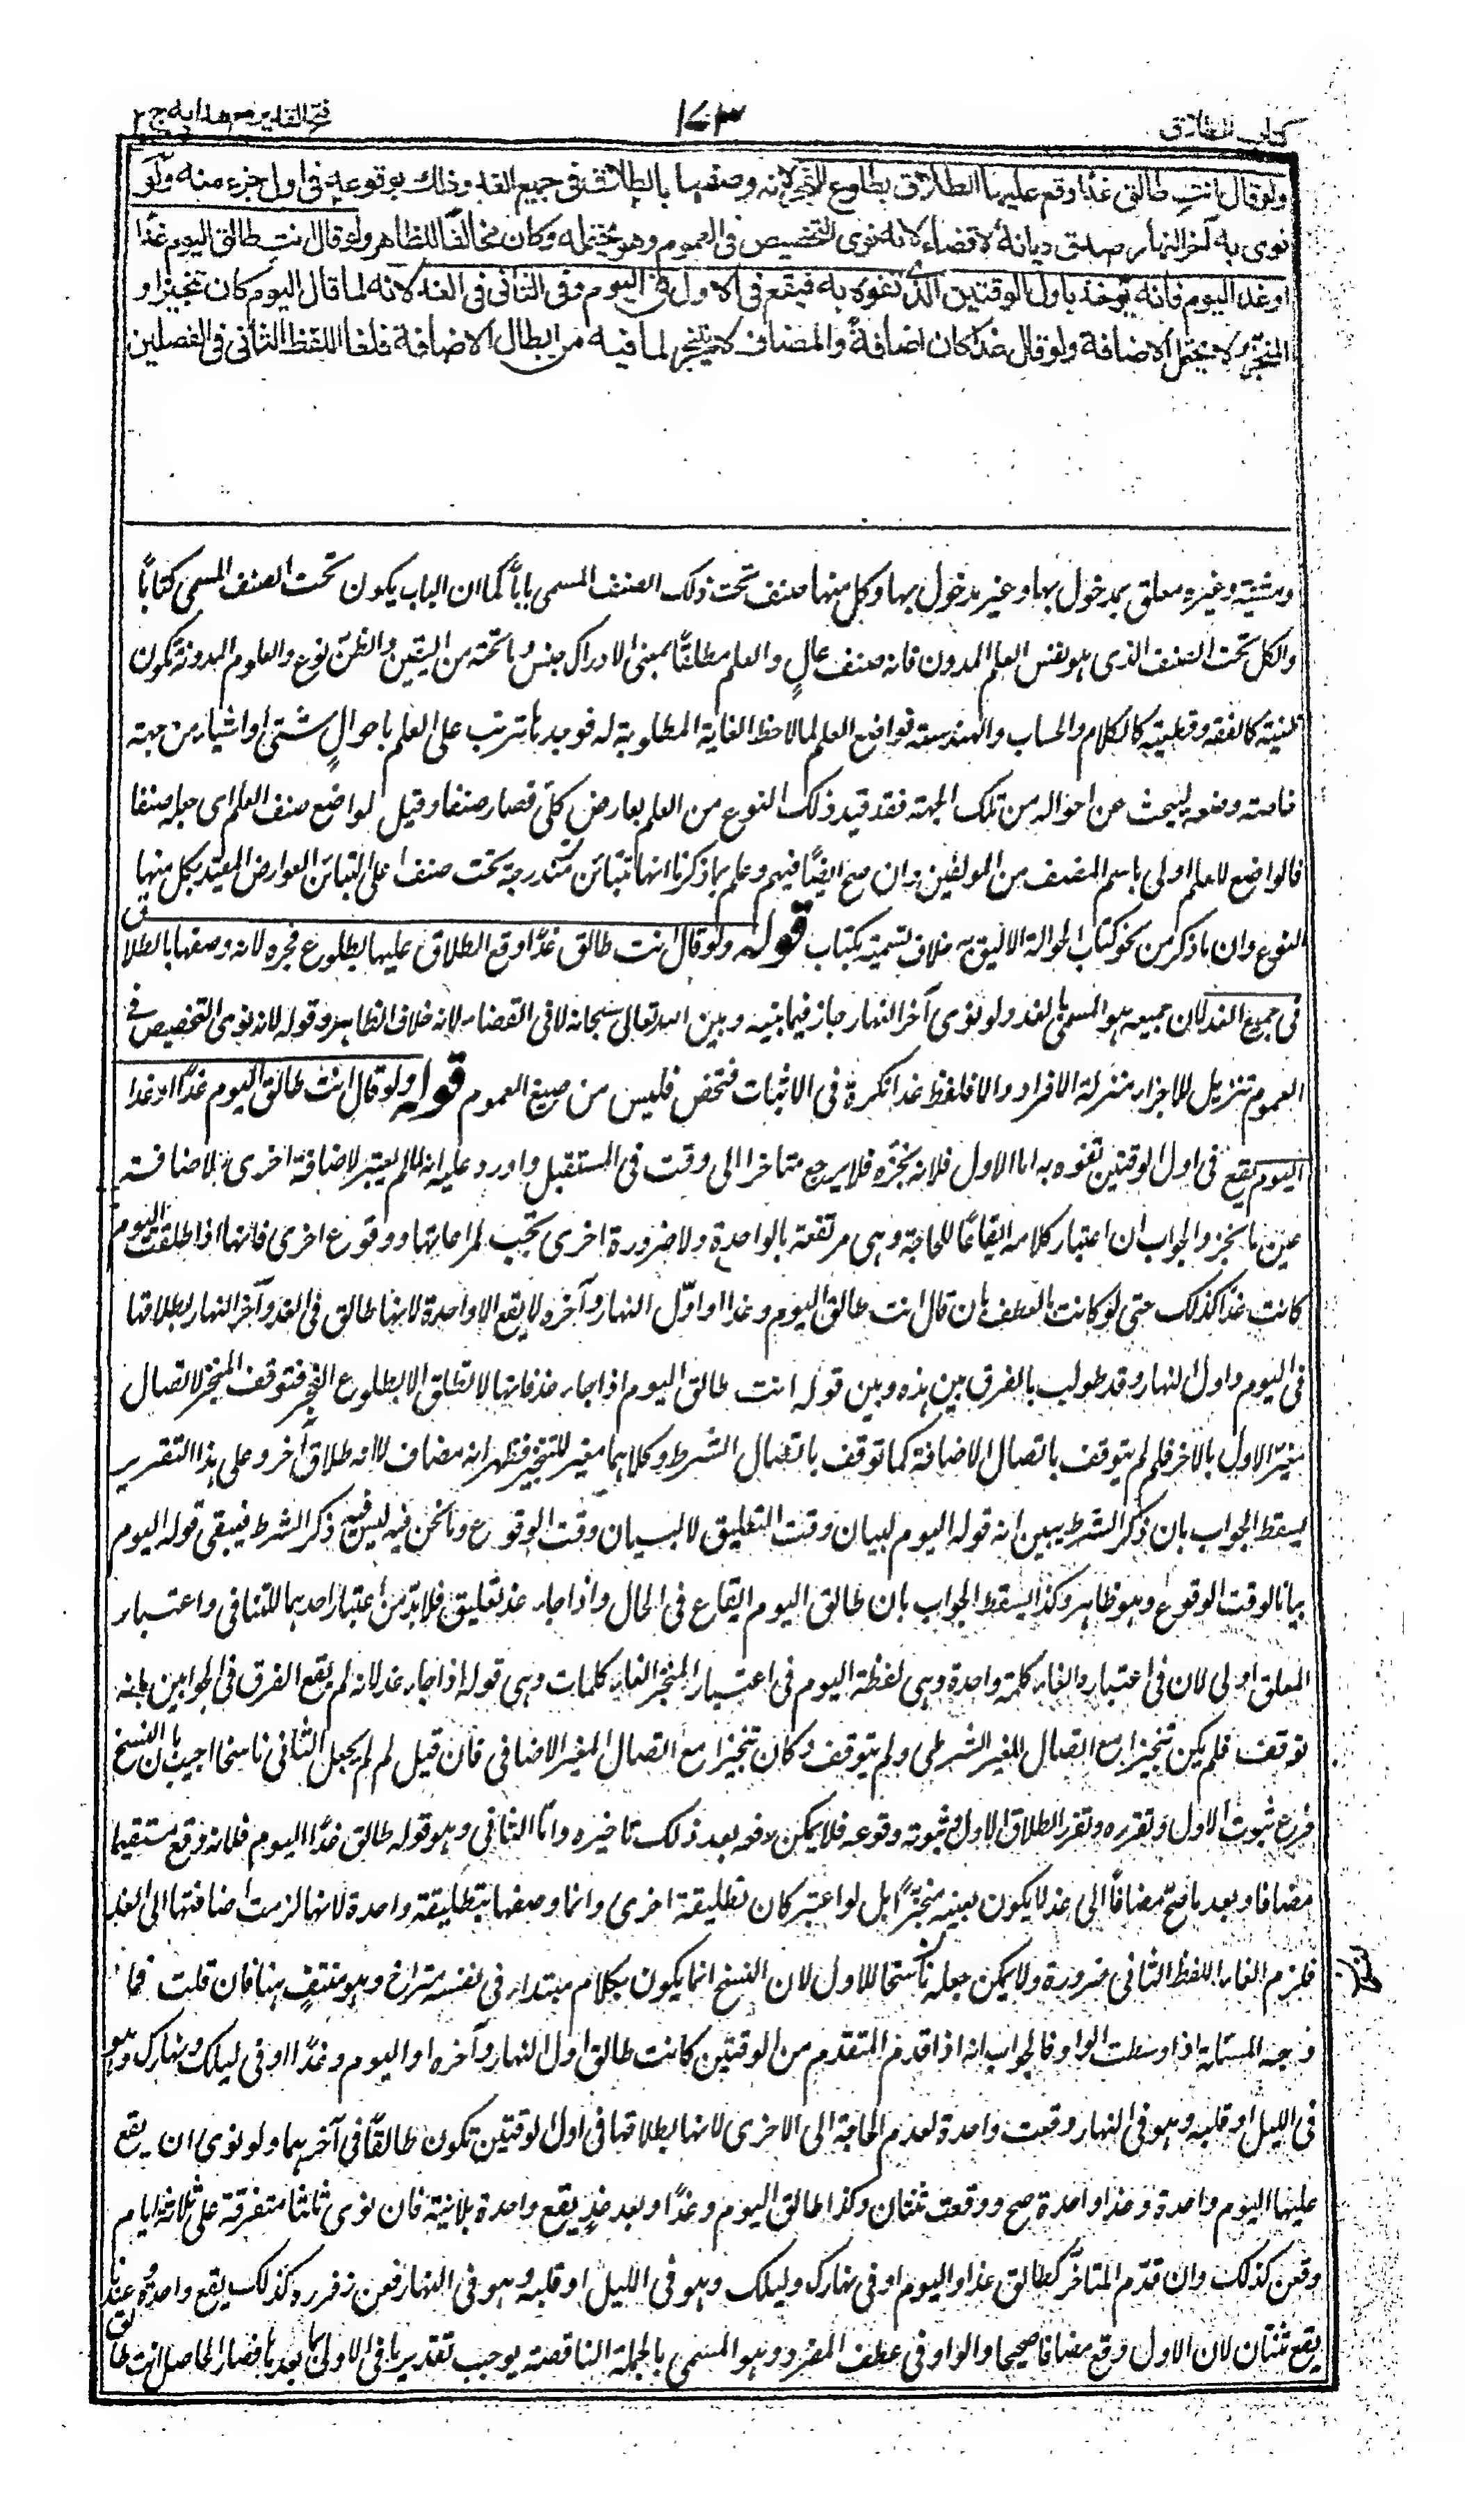 كتاب الطلاق
١٧٣
فتح القدير مع هدايه ج ٢
ولو قال انتِ طالق غدًا وقع عليها الطلاق بطلوع الفجر لانه وصفها بالطلاق فى جميع الغد وذلك بوقوعه فى اول جزء منه ولو
نوى به آخر النهار صدق ديانةً لا قضاءً لانه نوى التخصيص فى العموم وهو يحتمله وكان مخالفًا للظاهر ولو قال انت طالق اليوم غدًا
او غدا اليوم فانه يؤخذ باول الوقتين الذى تفوه به فيقع فى الاول فى اليوم وفى الثانى فى الغد لانه لما قال اليوم كان تنجيزا و
المنجز لا يحتمل الاضافة ولو قال غدًا كان اضافةً والمضاف لا يتنجز لما فيه من ابطال الاضافة فلغا اللفظ الثانى فى الفصلين
ومشيته وغيره معلق بمدخول بها وغير مدخول بها وكل منها صنف تحت ذلك الصنف المسمى بابًا كما ان الباب يكون تحت الصنف المسمى كتابًا
والكل تحت الصنف الذى هو نفس العلم المدون فانه صنف عالٍ والعلم مطلقًا بمعنى الادراك جنس وما تحته من اليقين والظن نوع والعلوم المدونة تكون
ظنية كالفقه وقطعية كالكلام والحساب والهندسة فواضع العلم لما لاحظ الغاية المطلوبة له فوجدها تترتب على العلم باحوال شتى او اشياء من جهة
خاصة وضعه ليبحث عن احواله من تلك الجهة فقد قيد ذلك النوع من العلم بعارض كلى فصار صنفا وقيل لواضع صنف العلم اى جعله صنفا
فالواضع للعلم اولى باسم المصنف من المولفين وان صح ايضًا فيهم وعلم بما ذكرنا انها تتباين مندرجة تحت صنف اعلى لتباين العوارض المقيد بكل منها
النوع وان ما ذكر من نحو كتاب الحوالة الاليق به خلاف تسميته بكتاب قوله ولو قال انت طالق غدًا وقع الطلاق عليها بطلوع فجره لانه وصفها بالطلاق
فى جميع الغد لان جميعه هو المسمى بالغد ولو نوى آخر النهار جاز فيما بينه وبين الله تعالى سبحانه لا فى القضاء لانه خلاف الظاهر وقوله لانه نوى التخصيص فى
العموم تنزيل للاجزاء منزلة الافراد والا فلفظ غدا نكرة فى الاثبات فتخص فليس من صيغ العموم قوله ولو قال انت طالق اليوم غدًا او غدا
اليوم يقع فى اول الوقتين تفوه به اما الاول فلانه نجزه فلا يرجع متاخرا الى وقت فى المستقبل واورد عليه انه لم لم يعتبر لاضافة اخرى لا لاضافة
عين ما نجز والجواب ان اعتبار كلامه ايقاعًا للحاجة وهى مرتفعة بالواحدة ولا ضرورة اخرى تجب لمراعاتها ووقوع اخرى فانها اذا طلقت اليوم
كانت غدا كذلك حتى لو كانت بالعطف بان قال انت طالق اليوم وغدا او اوّل النهار وآخره لا يقع الا واحدة لانها طالق فى الغد وآخر النهار بطلاقها
فى اليوم واول النهار وقد طولب بالفرق بين هذه وبين قوله انت طالق اليوم اذا جاء غد فانها لا تطلق الا بطلوع الفجر فتوقف المنجز لاتصال
مغيّر الاول بالآخر فلم لم يتوقف باتصال الاضافة كما توقف باتصال الشرط وكلاهما مغير للتنجيز فظهر انه مضاف لا انه طلاق آخر وعلى هذا التقرير
يسقط الجواب بان ذكر الشرط يبين انه قوله اليوم لبيان وقت التعليق لا لبيان وقت الوقوع وما نحن فيه ليس فيه ذكر الشرط فيبقى قوله اليوم
بيانا لوقت الوقوع وهو ظاهر وكذا يسقط الجواب بان طالق اليوم ايقاع فى الحال واذا جاء غد تعليق فلا بد من اعتبار احدهما للتنافى واعتبار
المعلق اولى لان فى اعتباره الغاء كلمة واحدة وهى لفظة اليوم فى اعتبار المنجز الغاء كلمات وهى قوله اذا جاء غد لانه لم يقع الفرق فى الجوابين بانه
توقف فلم يكن تنجيزا مع اتصال المغير الشرطى ولم يتوقف وكان تنجيزا مع اتصال المغير الاضافى فان قيل لم لم يجعل الثانى ناسخا اجيب بان النسخ
فرع ثبوت الاول وتقرره وتقرر الطلاق الاول بثبوته وقوعه فلا يمكن رفعه بعد ذلك تاخيره وامّا الثانى وهو قوله طالق غدًا اليوم فلانه وقع مستقيما
مضافا وبعد ما صحّ مضافًا الى غد لا يكون بعينه منجزًا بل لو اعتبر كان تطليقة اخرى وانما وصفها بتطليقة واحدة لانها لزمت اضافتها الى الغد
فلزم الغاء اللفظ الثانى ضرورة ولا يمكن جعله ناسخا للاول لان النسخ انما يكون بكلام مبتدا فى نفسه متراخ وهو منتفٍ هنا فان قلت فما
وجه المسئلة اذا وسطت الواو فالجواب انه اذا قدم المتقدم من الوقتين كانت طالق اول النهار وآخره او اليوم وغدًا او فى ليلك ونهارك وهو
فى الليل او قلبه وهو فى النهار وقعت واحدة لعدم الحاجة الى الاخرى لانها بطلاقها فى اول الوقتين تكون طالقًا فى آخرهما ولو نوى ان يقع
عليها اليوم واحدة وغدا واحدة صح ووقعت ثنتان وكذا طالق اليوم وغدًا وبعد غدٍ يقع واحدة بلا نية فان نوى ثلثا متفرقة على ثلاثة ايام
وقعن كذلك وان قدّم المتاخّر كطالق غدا واليوم او فى نهارك وليلك وهو فى الليل او قلبه وهو فى النهار فعن زفر ره كذلك يقع واحدة وعندنا
يقع ثنتان لان الاول وقع مضافا صحيحا والواو فى عطف المفرد وهو المسمى بالجملة الناقصة يوجب تقدير ما فى الاولى بما بعدها فصار الحاصل انت طالق